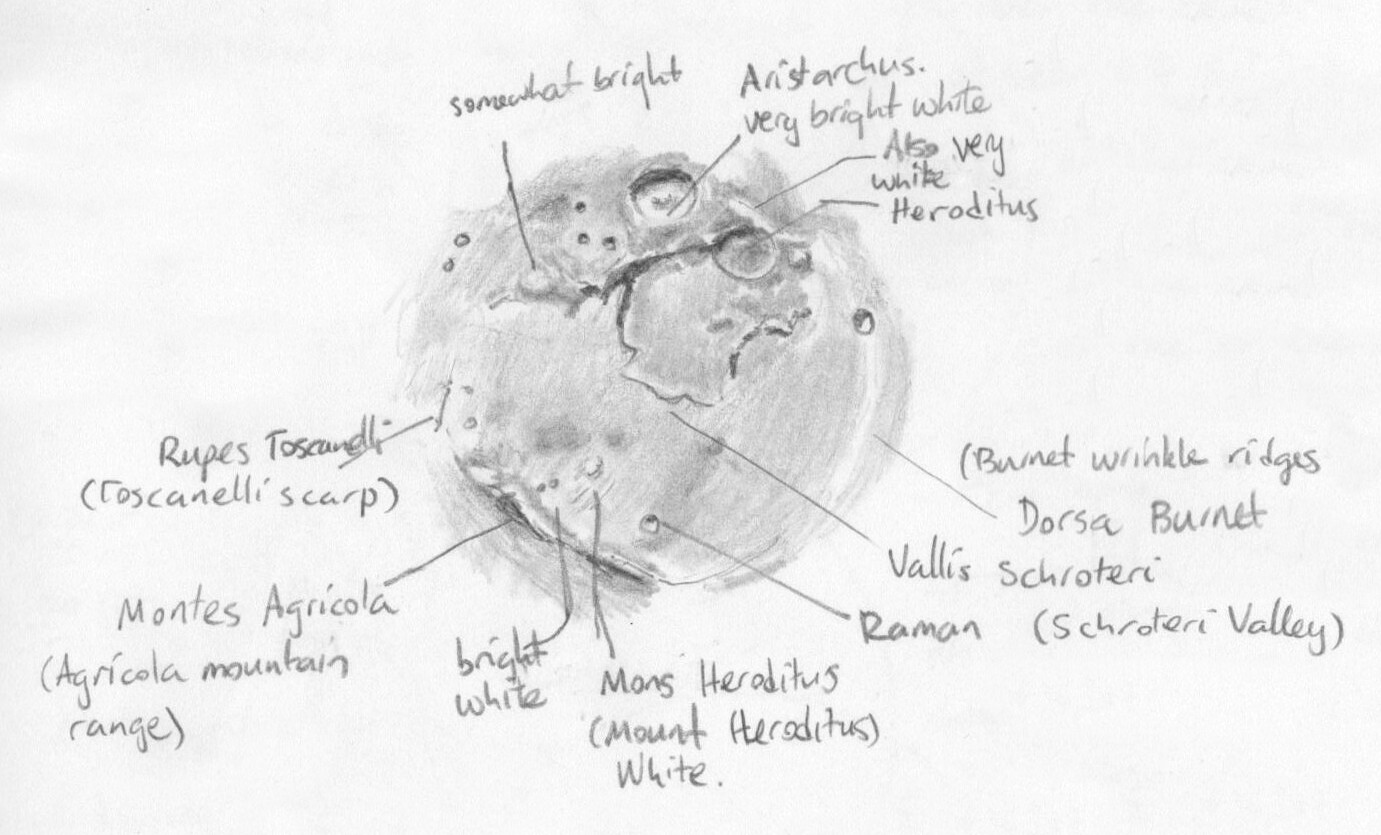 somewhat bright
Aristarchus.
very bright white
Also very
white
Heroditus
Rupes Toscanelli
(Toscanelli scarp)
(Burnet wrinkle ridges
Dorsa Burnet
Vallis Schroteri
(Schroteri Valley)
Raman
Montes Agricola
(Agricola mountain
range)
bright
white
Mons Heroditus
(Mount Heroditus)
White.